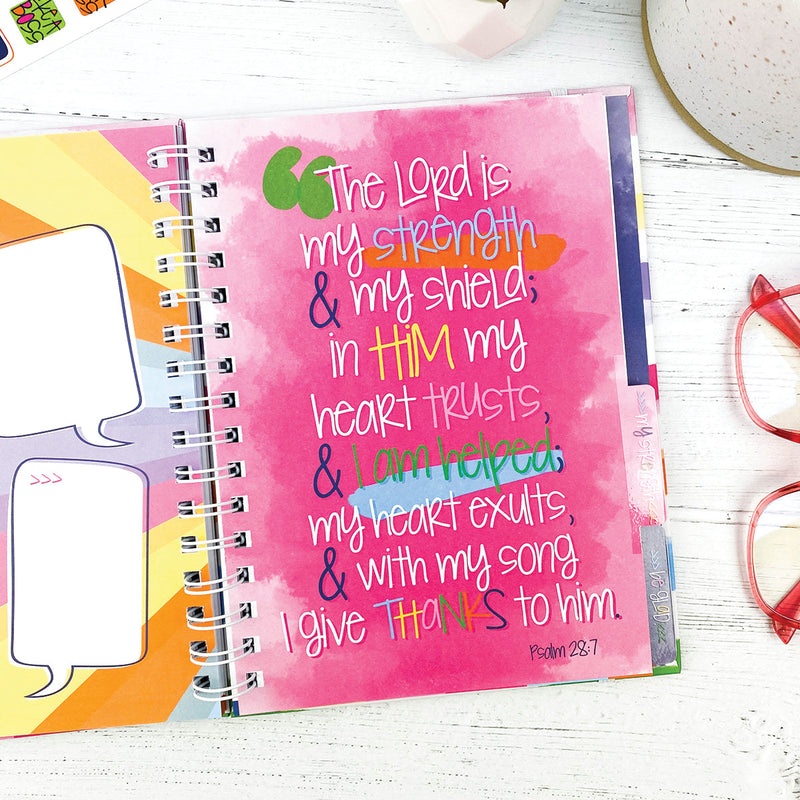 “The LORD is
my strength
& my shield;
in HIM my
heart trusts,
& I am helped;
my heart exults,
& with my song
I give THANKS to him.
Psalm 28:7
>>>
BOSS